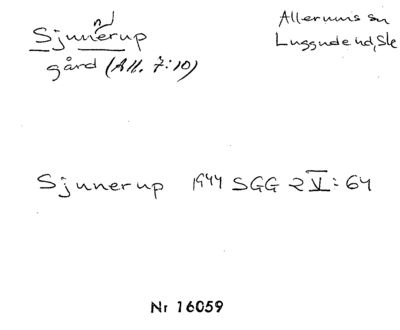 Sjunnerup
gård (All. 7:10)
Allerums sn
Luggude hd, Sk
Sjunerup 1944 SGG 2 V: 64
Nr 16059